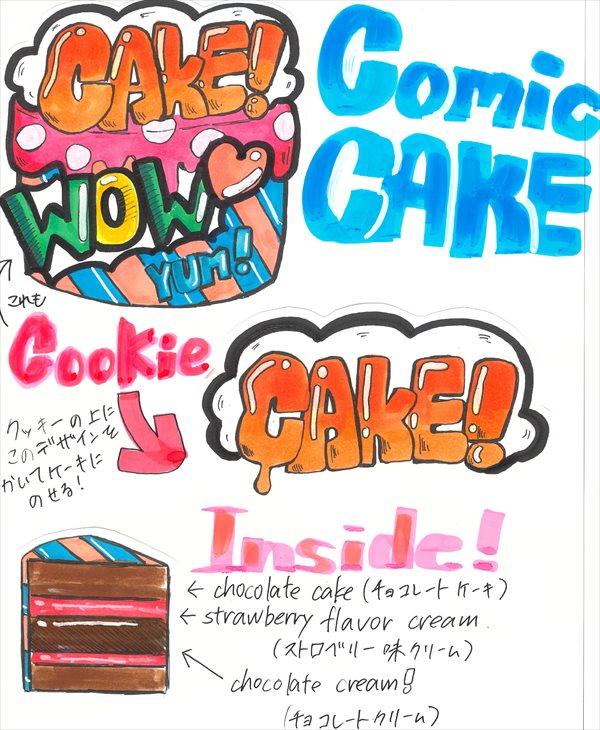 CAKE!
WOW
YUM!
Comic
CAKE
これも
Cookie
クッキーの上に
このデザインを
かいてケーキに
のせる!
CAKE!
Inside!
← chocolate cake (チョコレートケーキ)
← strawberry flavor cream.
(ストロベリー味クリーム)
chocolate cream!
(チョコレートクリーム)